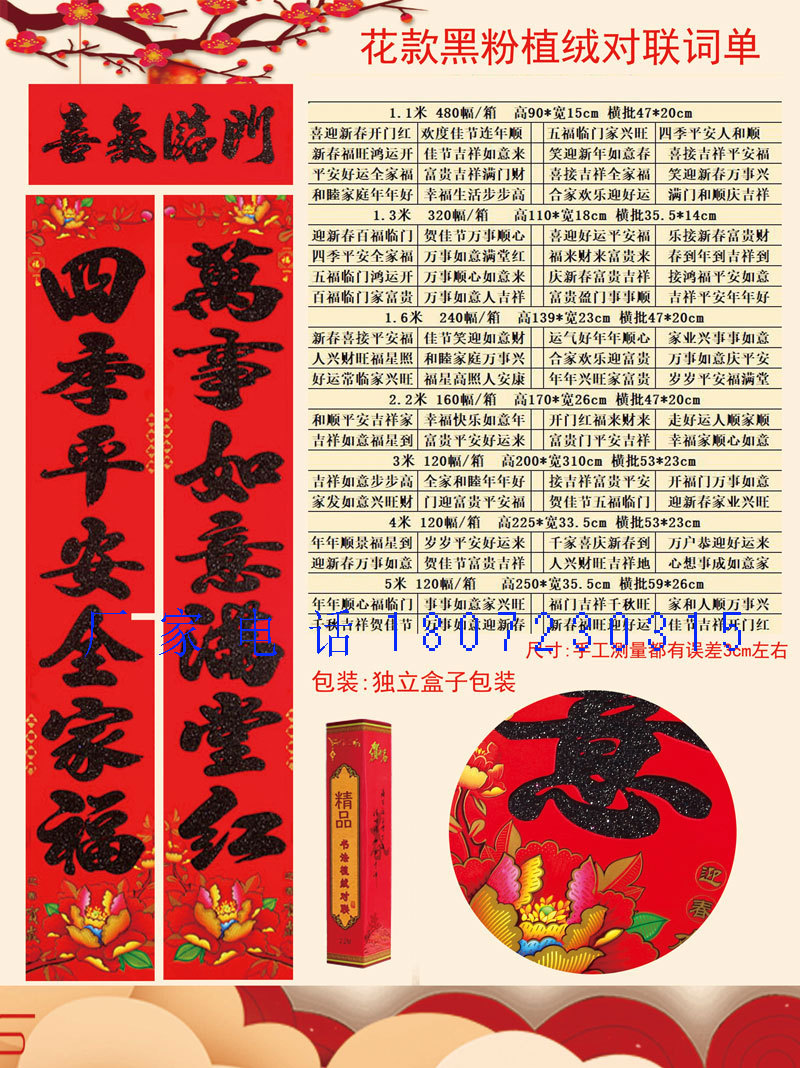 花款黑粉植绒对联词单
喜氣臨門
四季平安全家福
萬事如意满堂红
1.1米 480幅/箱 高90*宽15cm 横批47*20cm
喜迎新春开门红 欢度佳节连年顺 五福临门家兴旺 四季平安人和顺
新春福旺鸿运开 佳节吉祥如意来 笑迎新年如意春 喜接吉祥平安福
平安好运全家福 富贵吉祥满门财 喜接吉祥全家福 笑迎新春万事兴
和睦家庭年年好 幸福生活步步高 合家欢乐迎好运 满门和顺庆吉祥
1.3米 320幅/箱 高110*宽18cm 横批35.5*14cm
迎新春百福临门 贺佳节万事顺心 喜迎好运平安福 乐接新春富贵财
四季平安全家福 万事如意满堂红 福来财来富贵来 春到年到吉祥到
五福临门鸿运开 万事顺心如意来 庆新春富贵吉祥 接鸿福平安如意
百福临门家富贵 万事如意人吉祥 富贵盈门事事顺 吉祥平安年年好
1.6米 240幅/箱 高139*宽23cm 横批47*20cm
新春喜接平安福 佳节笑迎如意财 运气好年年顺心 家业兴事事如意
人兴财旺福星照 和睦家庭万事兴 合家欢乐迎富贵 万事如意庆平安
好运常临家兴旺 福星高照人安康 年年兴旺家富贵 岁岁平安福满堂
2.2米 160幅/箱 高170*宽26cm 横批47*20cm
和顺平安吉祥家 幸福快乐如意年 开门红福来财来 走好运人顺家顺
吉祥如意福星到 富贵平安好运来 富贵门平安吉祥 幸福家顺心如意
3米 120幅/箱 高200*宽310cm 横批53*23cm
吉祥如意步步高 全家和睦年年好 接吉祥富贵平安 开福门万事如意
家发如意兴旺财 门迎富贵平安福 贺佳节五福临门 迎新春家业兴旺
4米 120幅/箱 高225*宽33.5cm 横批53*23cm
年年顺景福星到 岁岁平安好运来 千家喜庆新春到 万户恭迎好运来
迎新春万事如意 贺佳节富贵吉祥 人兴财旺吉祥地 心想事成如意家
5米 120幅/箱 高250*宽35.5cm 横批59*26cm
年年顺心福临门 事事如意家兴旺 福门吉祥千秋旺 家和人顺万事兴
千秋吉祥贺佳节 万事如意迎新春 新春福旺迎好运 佳节吉祥开门红
厂家电话18072330315
尺寸:手工测量都有误差3cm左右
包装:独立盒子包装
精品
书法植绒对联
意
迎春